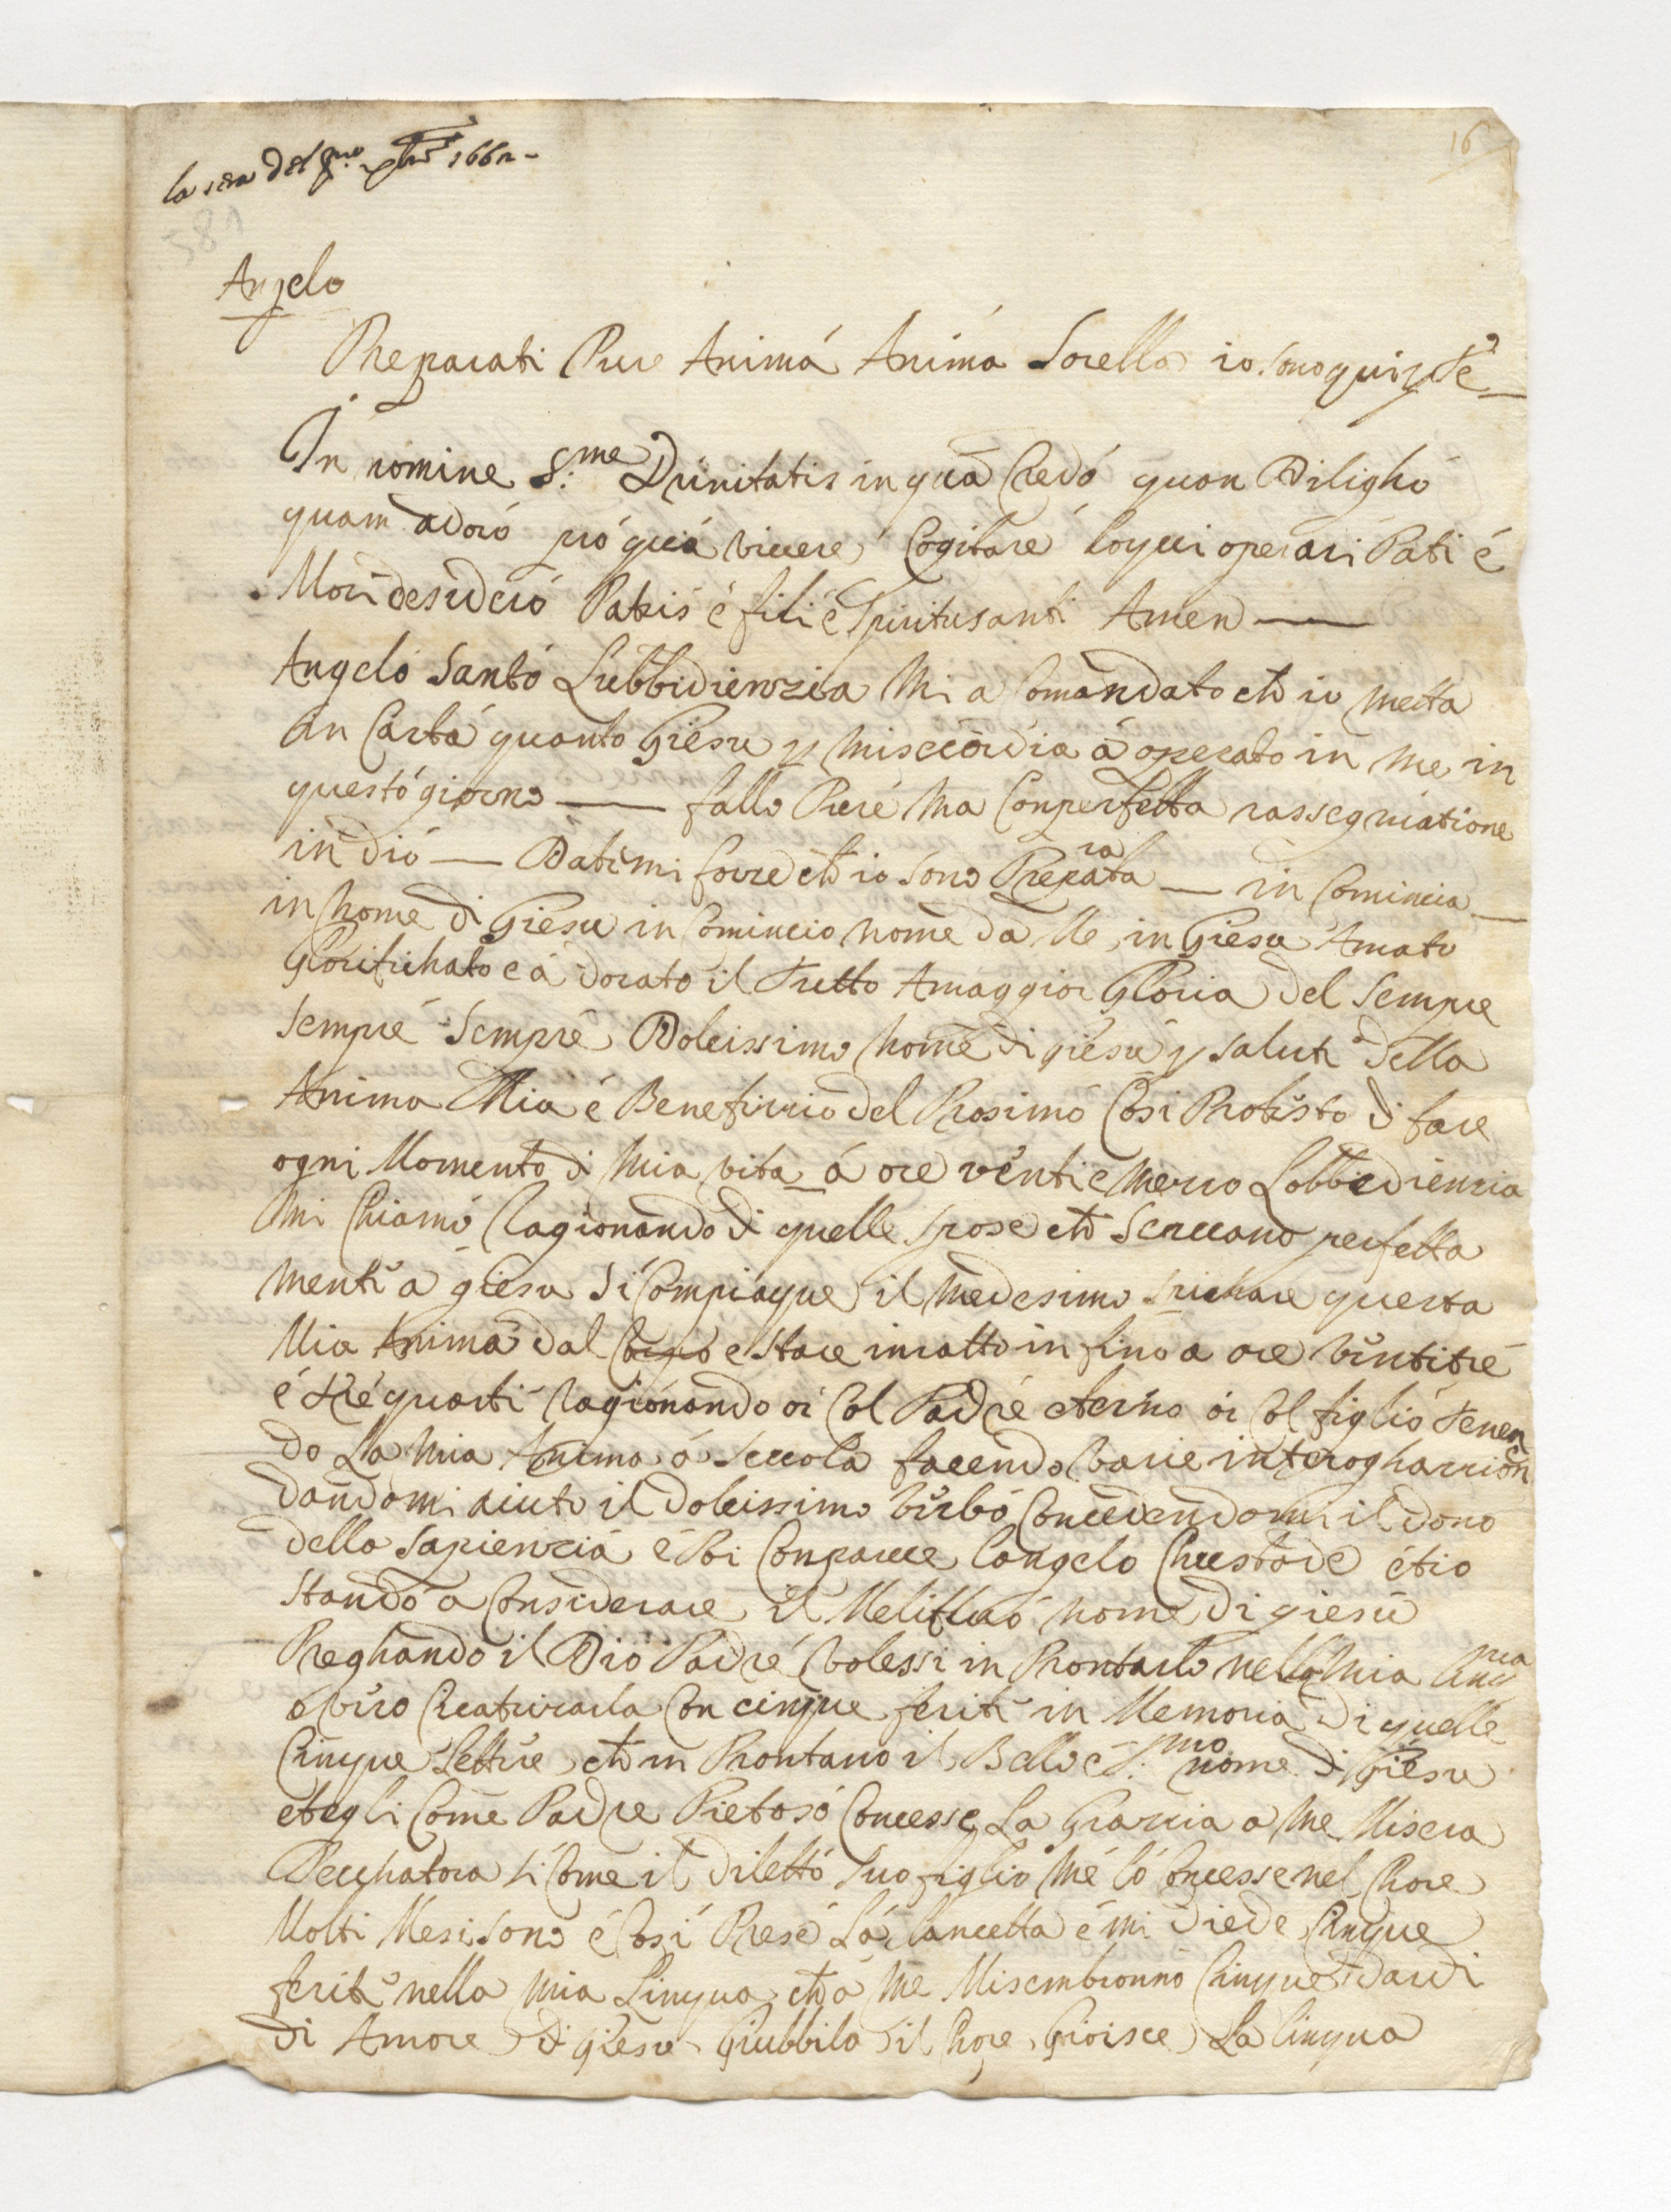 la sera del p.mo 1662
16
581
Angelo
Preparati Pure Animá Animá Sorella io sono qui p Te
In nomine S.me Trinitatis in quã Credó quan Dilighó
quam adoró pró quá vivere Cogitaré loqui operari Pati é
Mori desideró Patris é fili é Spiritusanti Amen
Angeló Santó Lubbidienzia Mi a Comandato ch io metta
in Cartá quanto Giesu p misericordia á operato in me in
questó giorno — fallo Puré ma Conperfetta rassegniatione
in dió — Datemi forze ch io sono Preparata — in Comincia —
in nome di Giesu in Comincio nome da Me in Giesu Amato
Glorifichato e á dorato il Tutto Amaggior Gloria del Sempre
Sempré Sempré Dolcissimo nome di giesu p salute della
Anima Mia é Benefizzio del Prosimó Cosi Protesto di fare
ogni Momento di mia vita á ore venti e mezzo Lobbedienzia
Mi Chiamó Ragionando di quelle spose ch Servano perfetta
mente a giesu Si Compiaque il medesimo spichare questa
Mia Anima dal Corpo e stare inratto in fino a ore ventitré
é tré quarti ragionando or Col Padré eterno or Col figlió Tenen
do La mia Anima á Scuola facendo varie interogharrion
dandomi aiuto il dolcissimo verbó Concedendomi il dono
della Sapienziá é Poi Conparve Langeló Chustode étio
Stando a Considerare il Melifluó nome di giesu
Preghando il Dió Padré volessi in Prontarlo nella Mia lingua
ó vero Creaturarla Con cinque ferite in Memoria di quelle
Cinque Lettere ch in Prontano il Bello é S.mo nome di Giesu
etegli Come Padre Pietosó Concesse La Grarria a Me Misera
Pecchatora si Come il dilettó suo figlio Mé ló Concesse nel Chore
Molti Mesi sono é Cosi Prese Lá lancetta é mi diede Cinque
ferite nella mia Lingua ch á me Misembronno Cinque dardi
di Amore di giesu Giubbila il Chore Gioisce La lingua